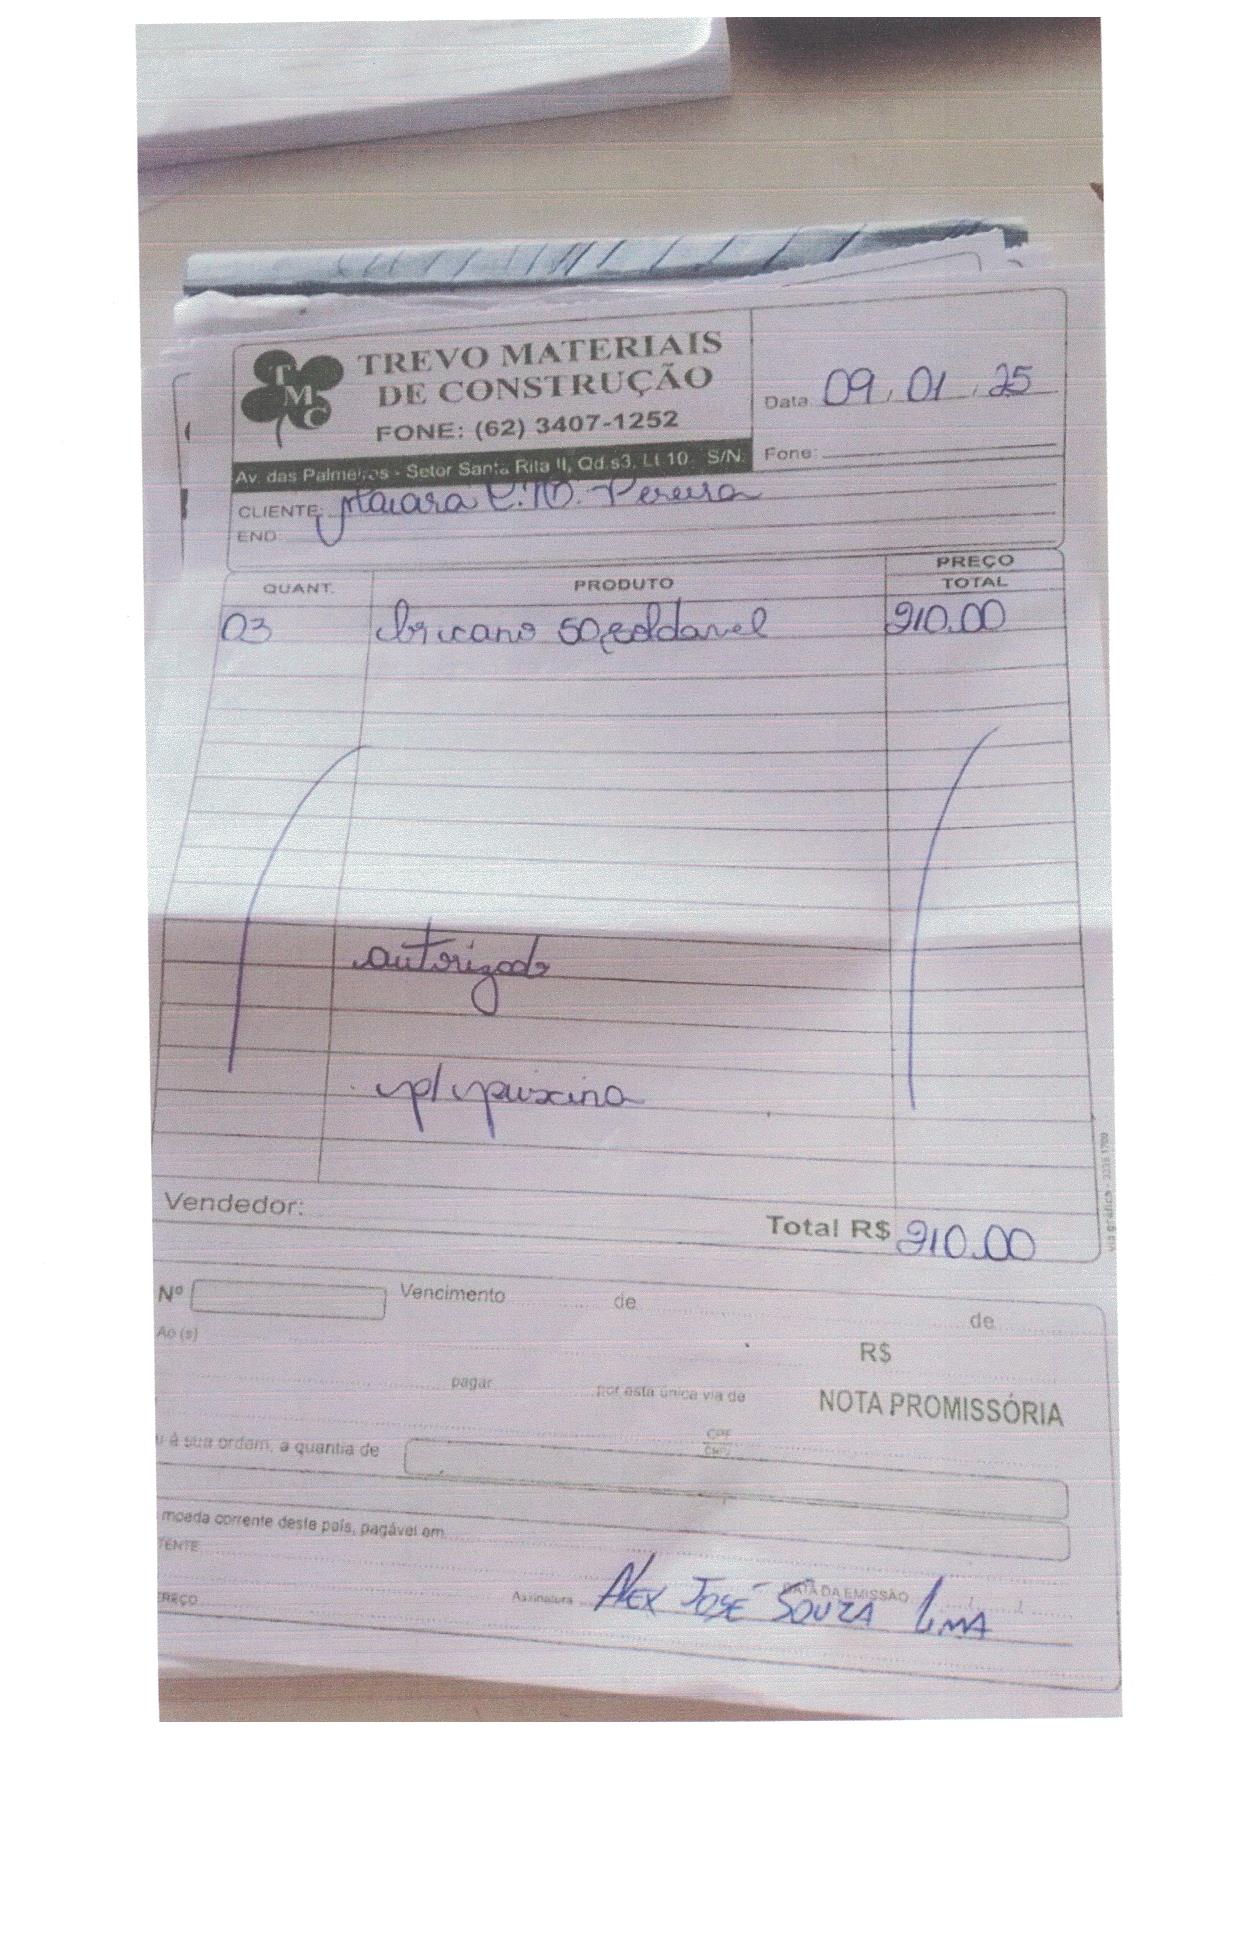 TMC
TREVO MATERIAIS
DE CONSTRUÇÃO
FONE: (62) 3407-1252
Av. das Palmeiras - Setor Santa Rita II, Qd.s3, Lt 10. S/N.
Data 09, 01, 25
Fone:
CLIENTE: Maiara Pereira
END
QUANT. PRODUTO PREÇO TOTAL
03 50 soldavel 910.00
autorizado
p/ piscina
Vendedor:
Total R$ 910.00
Nº Vencimento de de
Ao (s) R$
pagar por esta única via de NOTA PROMISSÓRIA
à sua ordem, a quantia de
CPF
CNPJ
moeda corrente deste país, pagável em
TENTE
EREÇO Assinatura ALEX JOSÉ SOUZA LIMA
DATA DA EMISSÃO / /